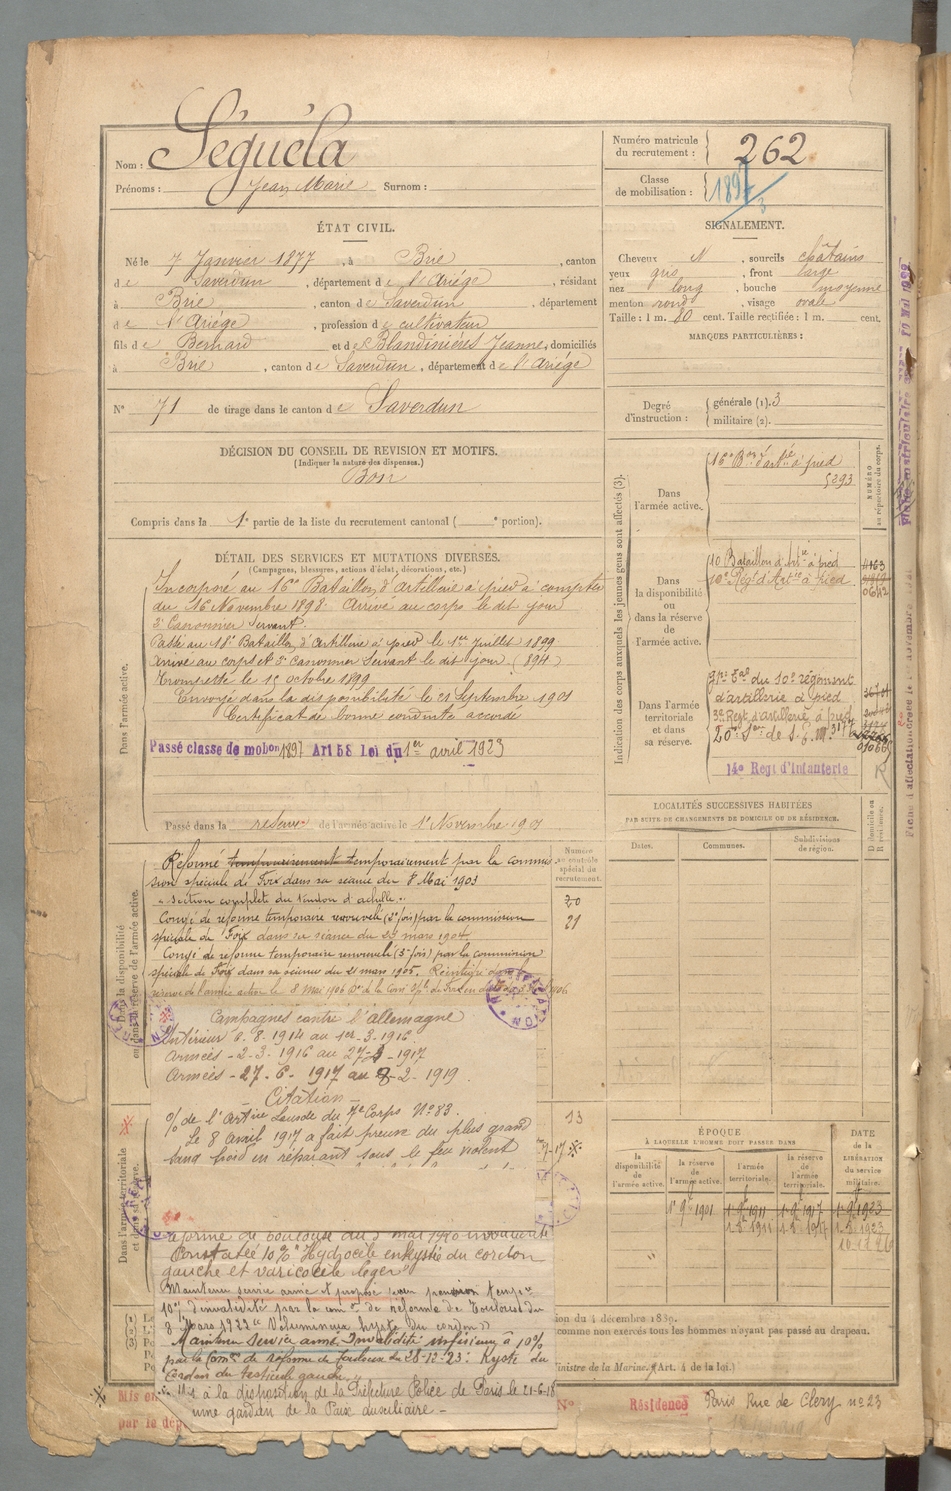 Nom : Séguéla
Prénoms : Jean Marie Surnom :
Numéro matricule du recrutement : 262
Classe de mobilisation : 1897/3
ÉTAT CIVIL.
Né le 7 Janvier 1877, à Brie, canton
de Saverdun, département de l'Ariége, résidant
à Brie, canton de Saverdun, département
de l'Ariége, profession de cultivateur
fils de Bernard et de Blandiniéres Jeanne, domiciliés
à Brie, canton de Saverdun, département de l'Ariége
N° 71 de tirage dans le canton de Saverdun
SIGNALEMENT.
Cheveux N, sourcils châtains
yeux gris, front large
nez long, bouche moyenne
menton rond, visage ovale
Taille : 1 m. 80 cent. Taille rectifiée : 1 m. cent.
MARQUES PARTICULIÈRES :
Degré d'instruction : générale (1). 3
militaire (2).
DÉCISION DU CONSEIL DE REVISION ET MOTIFS.
(Indiquer la nature des dispenses.)
Bon
Compris dans la 1e partie de la liste du recrutement cantonal ( e portion).
DÉTAIL DES SERVICES ET MUTATIONS DIVERSES.
(Campagnes, blessures, actions d'éclat, décorations, etc.)
Dans l'armée active.
Incorporé au 16e Bataillon d'Artillerie à pied à compter
du 16 Novembre 1898. Arrivé au corps le dit jour
2e Canonnier Servant.
Passé au 18e Bataillon d'Artillerie à pied le 1er Juillet 1899.
Arrivé au corps et 2e Canonnier Servant le dit jour (894)
Trompette le 15 octobre 1899
Envoyé dans la disponibilité le 21 Septembre 1901
Certificat de bonne conduite accordé
Passé classe de mobon 1897 Art 58 Loi du 1er avril 1923
Passé dans la réserve de l'armée active le 1er Novembre 1901
Dans la disponibilité ou dans la réserve de l'armée active.
Réformé temporairement temporairement par la commis
sion spéciale de Foix dans sa séance du 8 Mai 1903
"section complète du tendon d'achille".
Congé de réforme temporaire renouvelé (2e fois) par la commission
spéciale de Foix dans sa séance du 29 mars 1904
Congé de réforme temporaire renouvelé (3e fois) par la commission
spéciale de Foix dans sa séance du 21 mars 1905. Réintégré dans la
réserve de l'armée active le 8 Mai 1906
Numéro au contrôle spécial du recrutement.
20
21
Campagnes contre l'Allemagne
Intérieur 6.8.1914 au 1er-3-1916.
Armées - 2-3.1916 au 27-3-1917
Armées - 27-6-1917 au 2-2-1919.
Citation -
O/ de l'Artie Lourde du 7e Corps N° 83.
Le 8 Avril 1917 a fait preuve du plus grand
sang froid en réparant sous le feu violent
13
Dans l'armée territoriale et dans sa réserve.
réforme de Toulouse du 3 mai 1920 invalidité
Constatée 10% "Hydrocèle enkystée du cordon
gauche et varicocèle léger"
Maintenu service armé et proposé pour pension tempre
10% d'invalidité par la comon de réforme de Toulouse du
8 Mars 1922 "Volumineux kyste du cordon"
Maintenu service armé Invalidité inférieure à 10%
par la Comon de réforme de Toulouse du 28-12-23: Kyste du
Cordon du testicule gauche.
Mis à la disposition de la Préfecture Police de Paris le 21-6-18
comme gardien de la Paix auxiliaire -
Indication des corps auxquels les jeunes gens sont affectés (3).
NUMÉRO au répertoire du corps.
Dans l'armée active.
16e Bon d'artie à pied
5293
Dans la disponibilité ou dans la réserve de l'armée active.
10 Bataillon d'Artie à pied
10e Régt d'Artie à pied
0642
Dans l'armée territoriale et dans sa réserve.
du 10e régiment
d'artillerie à pied
3e Régt d'artillerie à pied
14e Regt d'Infanterie
R
LOCALITÉS SUCCESSIVES HABITÉES
PAR SUITE DE CHANGEMENTS DE DOMICILE OU DE RÉSIDENCE.
Dates.
Communes.
Subdivisions de région.
D domicile ou R résidence.
ÉPOQUE
À LAQUELLE L'HOMME DOIT PASSER DANS
DATE de la LIBÉRATION du service militaire.
la disponibilité de l'armée active.
la réserve de l'armée active.
l'armée territoriale.
la réserve de l'armée territoriale.
1er 9bre 1901
1er 9bre 1911
1er 9bre 1917
1er 9bre 1923
ion du 4 décembre 1889.
comme non exercés tous les hommes n'ayant pas passé au drapeau.
Ministre de la Marine. (Art. 4 de la loi.)
Mis en
par le dép
N°
Résidence Paris Rue de Clery n° 23